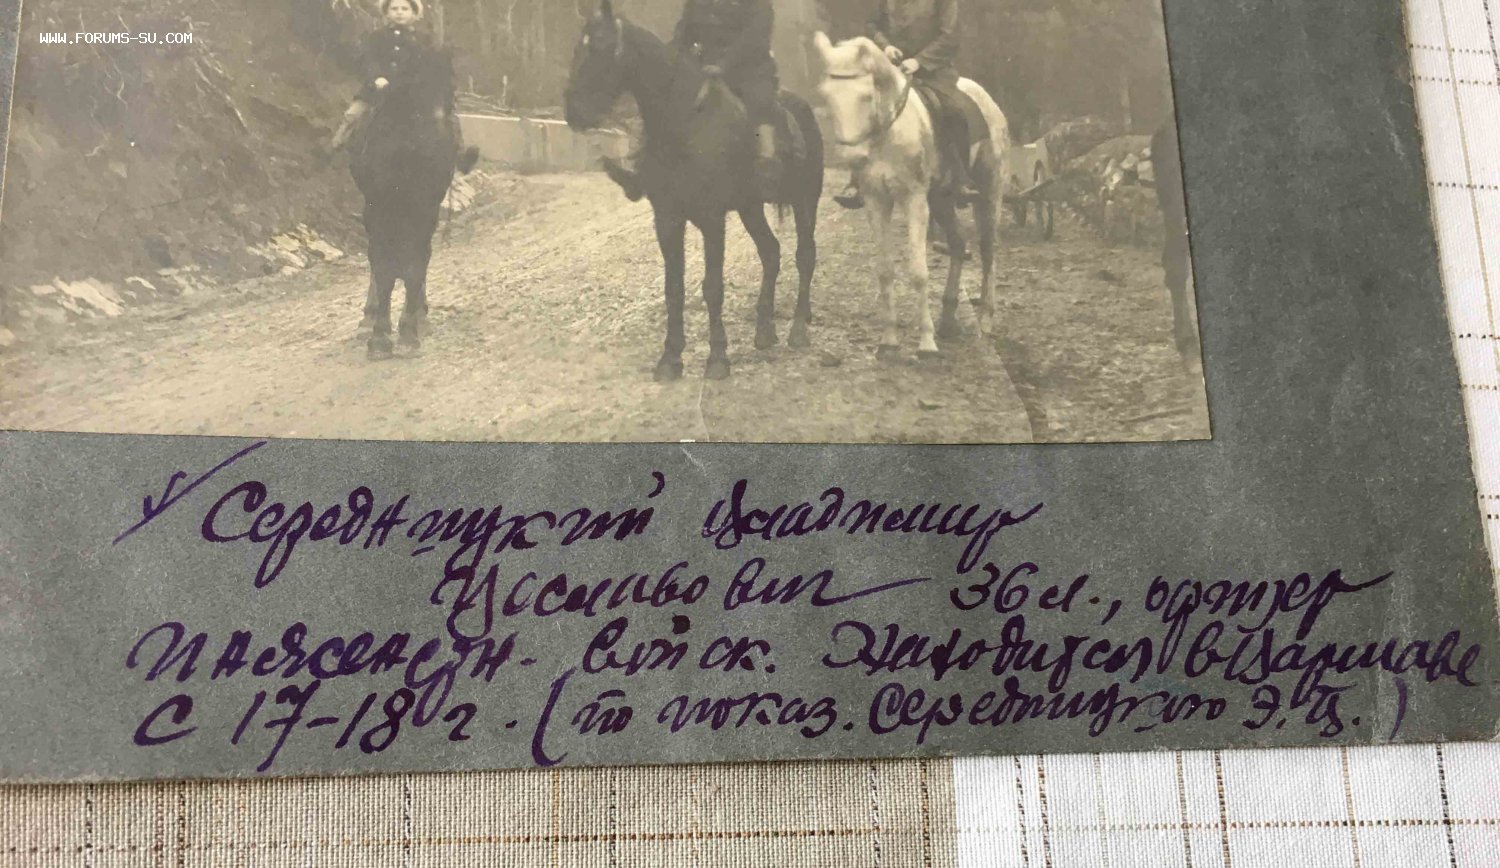 WWW.FORUMS-SU.COM
Середницкий Владимир
36 л., офицер
инженерн. войск. Находится в Варшаве
с 17-18 г. (по показ. Середницкого Э. В.)